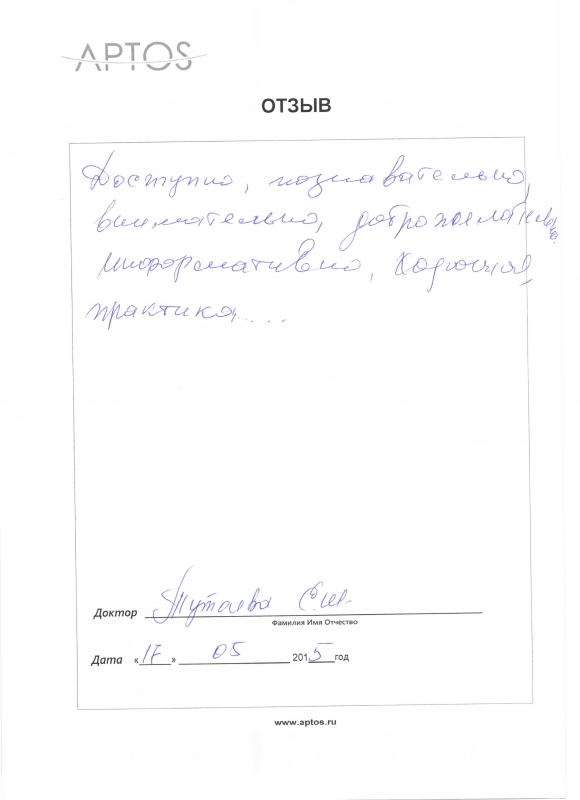 APTOS
ОТЗЫВ
Доступно, познавательно,
внимательно, доброжелательно.
Информативно, хорошая
практика....
Доктор Тутаева
Фамилия Имя Отчество
Дата «17» 05 2015 год
www.aptos.ru